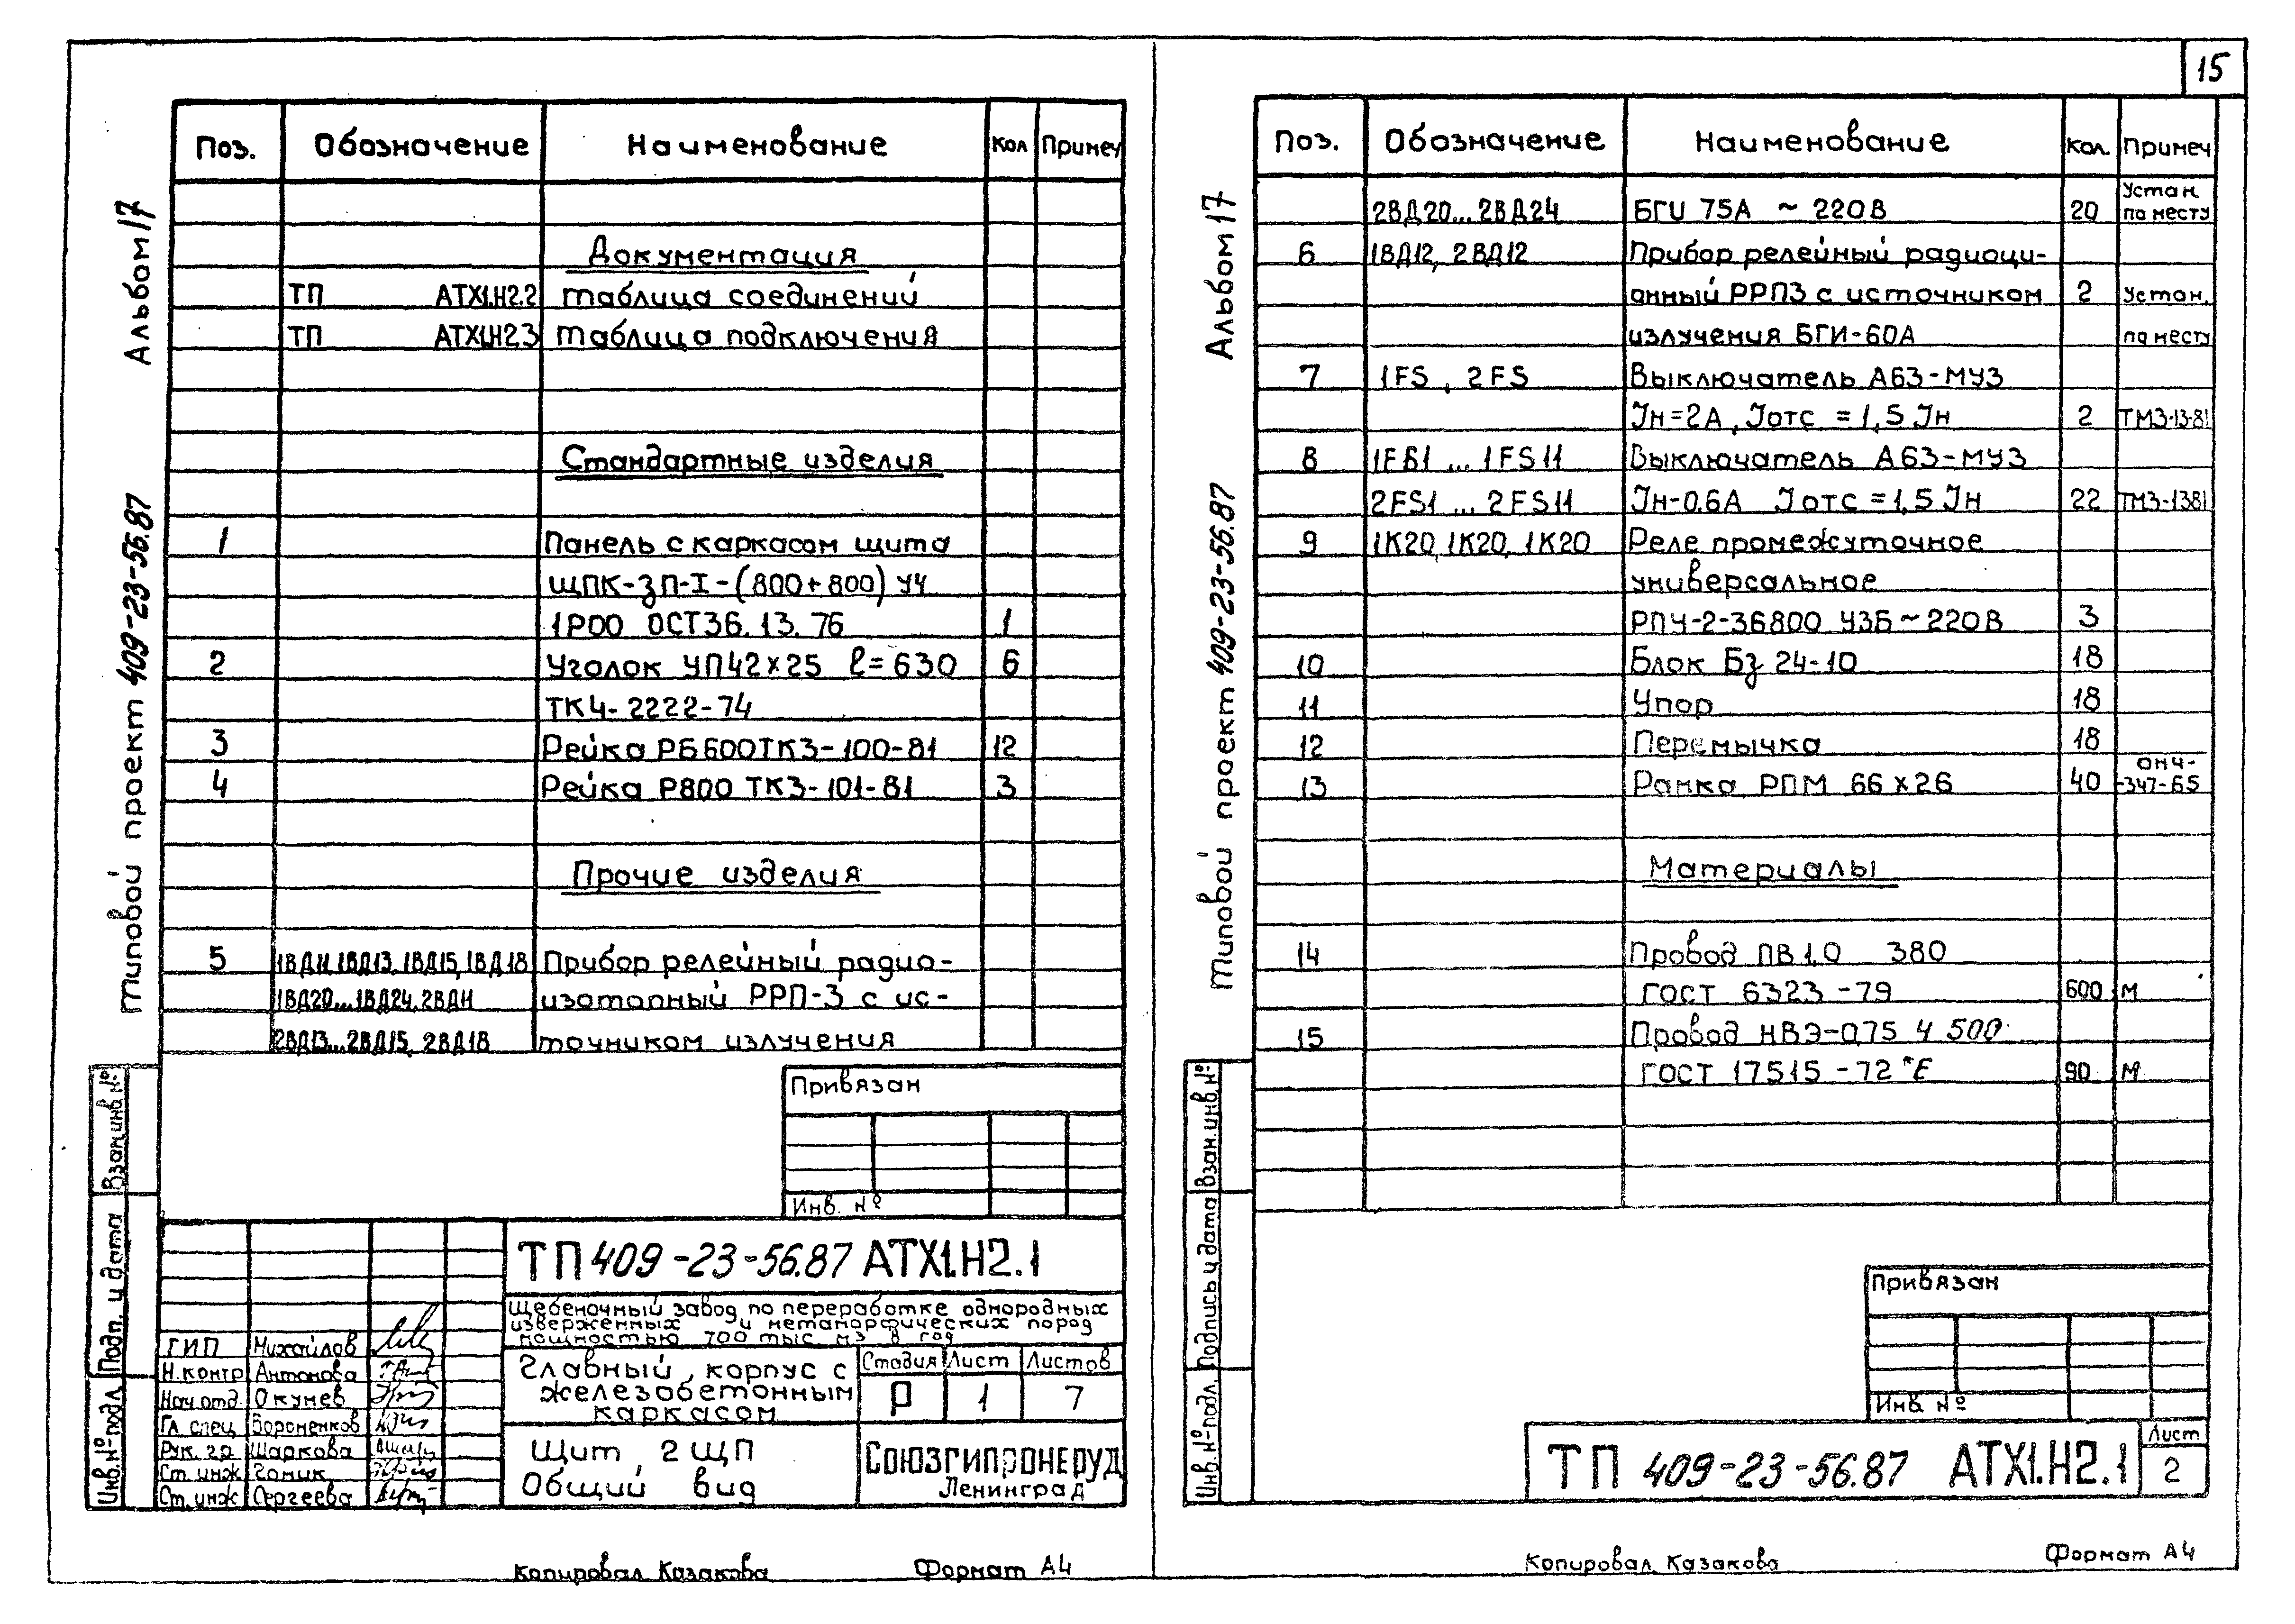 15
Альбом 17
типовой проект 409-23-56.87
Поз. Обозначение Наименование Кол Примеч
Документация
ТП АТХ1.Н2.2 таблица соединений
ТП АТХ1.Н2.3 таблица подключения
Стандартные изделия
1 Панель с каркасом щита
ЩПК-ЗП-I-(800+800) УЧ
1Р00 ОСТ36.13.76 1
2 Уголок УП42х25 ℓ=630 6
ТК4-2222-74
3 Рейка РБ600ТК3-100-81 12
4 Рейка Р800 ТК3-101-81 3
Прочие изделия
5 1ВД11, 1ВД13, 1ВД15, 1ВД18 Прибор релейный радио-
1ВД20...1ВД24, 2ВД11 изотопный РРП-3 с ис-
2ВД13...2ВД15, 2ВД18 точником излучения
Привязан
Инв. №
Взам.инв.№
Подп. и дата
Инв.№ подл
ТП 409-23-56.87 АТХ1.Н2.1
Щебеночный завод по переработке однородных
изверженных и метаморфических пород
мощностью 700 тыс м3 в год
ГИП Михайлов
Н.контр Антонова
Нач.отд. Окунев
Гл. спец Вороненков
Рук. гр Шаркова
Ст. инж Гоник
Ст. инж Сергеева
Главный корпус с
железобетонным
каркасом
Стадия Лист Листов
Р 1 7
Щит 2ЩП
Общий вид
СОЮЗГИПРОНЕРУД
Ленинград
Копировал Казакова Формат А4
Альбом 17
типовой проект 409-23-56.87
Поз. Обозначение Наименование Кол. Примеч
2ВД20...2ВД24 БГИ 75А ~ 220В 20 Устан. по месту
6 1ВД12, 2ВД12 Прибор релейный радиоци-
анный РРП3 с источником 2 Устан.
излучения БГИ-60А по месту
7 1FS, 2FS Выключатель А63-МУ3
Јн=2А, Јотс = 1,5 Јн 2 ТМ3-13-81
8 1FB1 ... 1FS11 Выключатель А63-МУ3
2FS1 ... 2FS11 Јн-0.6А Јотс =1,5 Јн 22 ТМ3-1381
9 1К20, 1К20, 1К20 Реле промежуточное
универсальное
РПУ-2-36800 У3Б ~ 220В 3
10 Блок Бз 24-10 18
11 Упор 18
12 Перемычка 18
13 Рамка РПМ 66 х 26 40 ОН4-
-347-65
Материалы
14 Провод ПВ1.0 380
ГОСТ 6323-79 600 м
15 Провод НВЭ-0,75 4 500
ГОСТ 17515-72*Е 90 м
Взам.инв.№
Подпись и дата
Инв.№ подл.
Привязан
Инв №
ТП 409-23-56.87 АТХ1.Н2.1
Лист
2
Копировал Казакова Формат А4